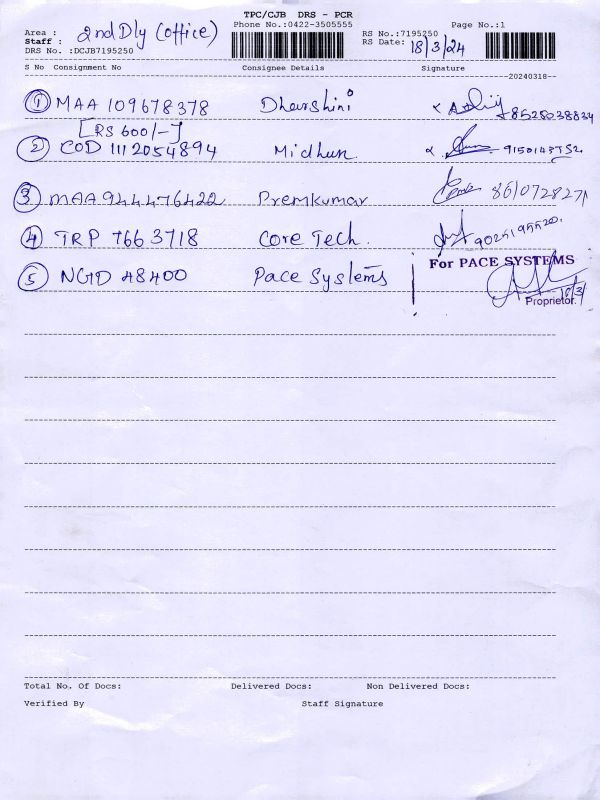 TPC/CJB DRS - PCR
Phone No.:0422-3505555
Page No.:1
Area : 2nd Dly (office)
Staff :
DRS No. :DCJB7195250
RS No.:7195250
RS Date: 18/3/24
S No Consignment No Consignee Details Signature
--20240318--
1 MAA 109678378 Dharshini 8528038834
[RS 600/-]
2 COD 1112054894 Midhun
3 MAA944476422 Premkumar 8610728271
4 TRP 7663718 Core Tech. 9025195520.
5 NGD 48400 Pace Systems
For PACE SYSTEMS
Proprietor.
Total No. Of Docs: Delivered Docs: Non Delivered Docs:
Verified By Staff Signature